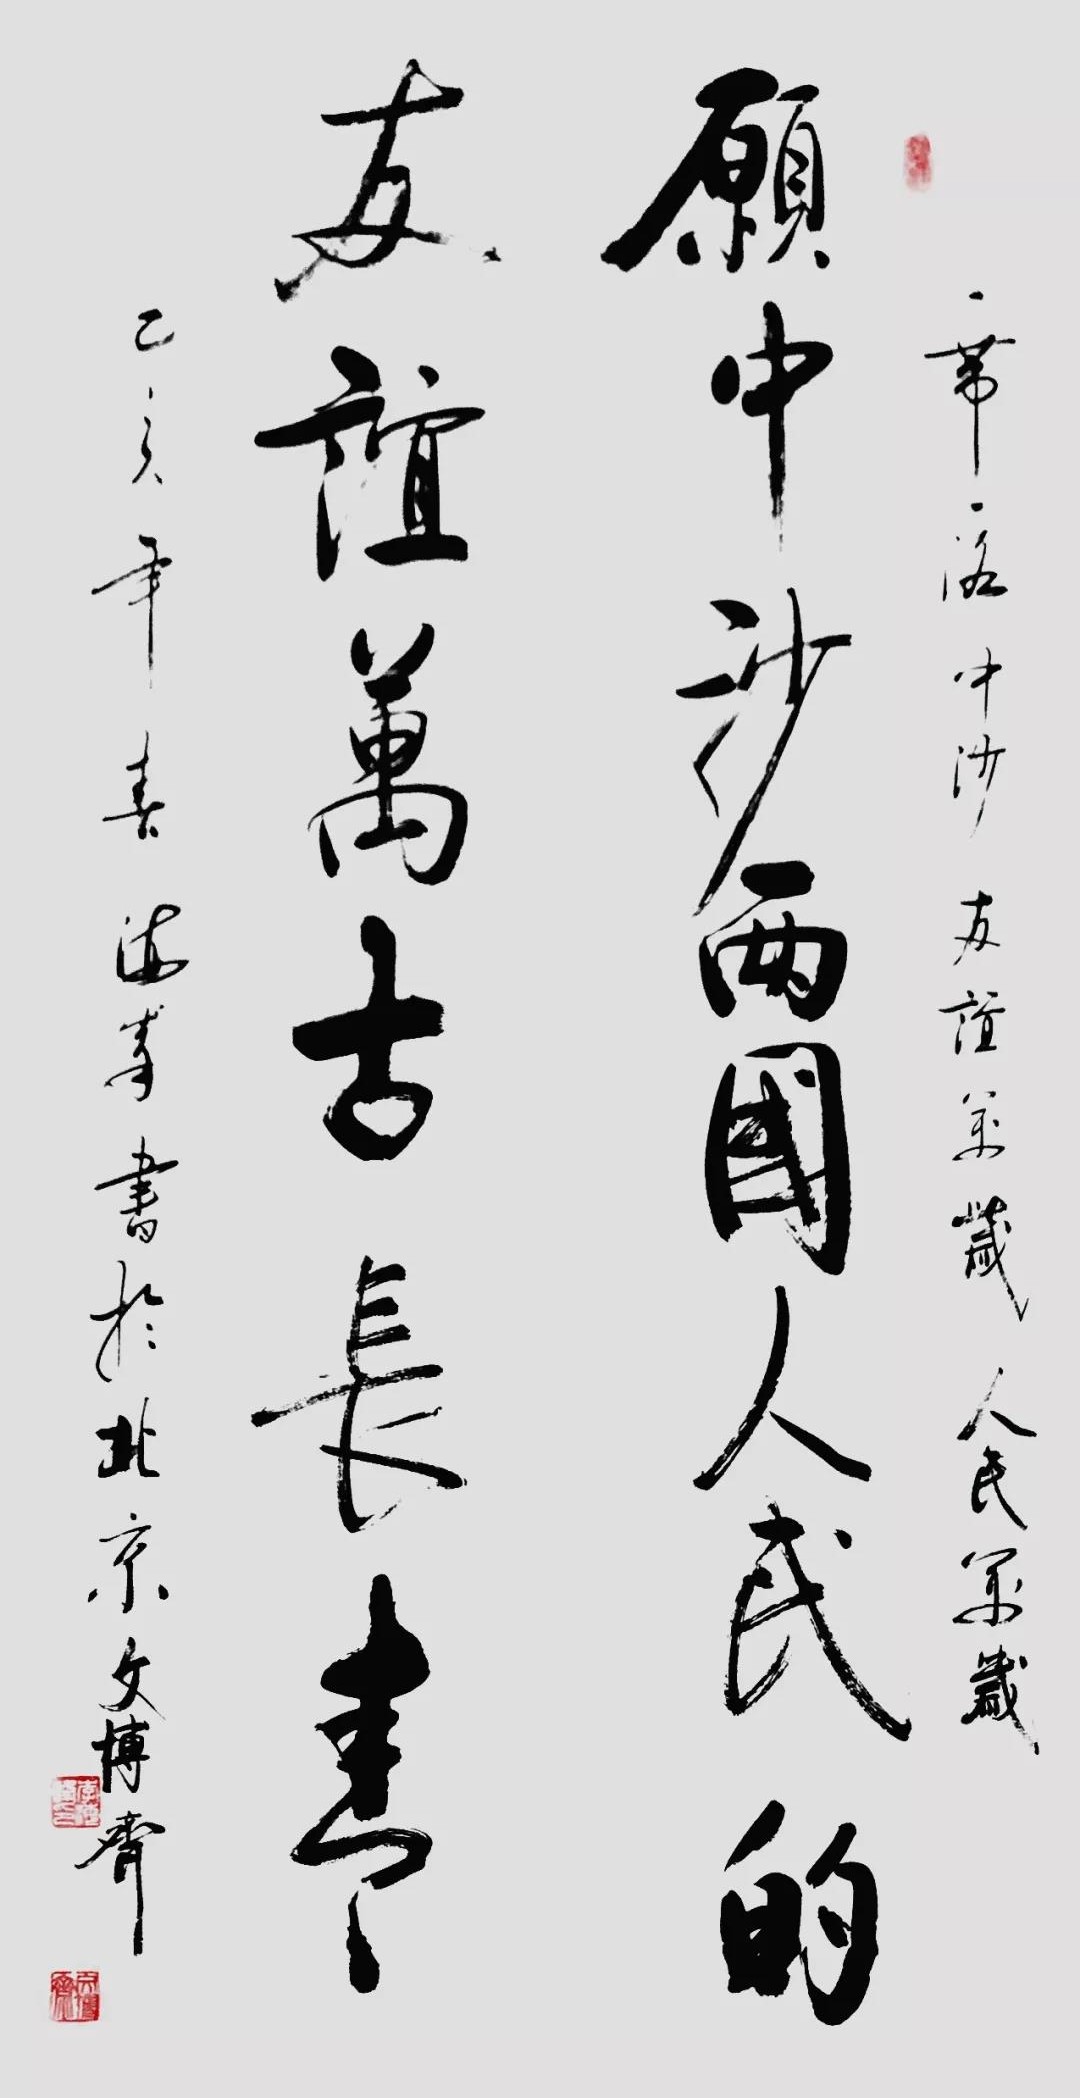 一带一路中沙友谊万歲人民万歲
願中沙两國人民的
友誼萬古長青
己亥年春海峰書於北京文博齋